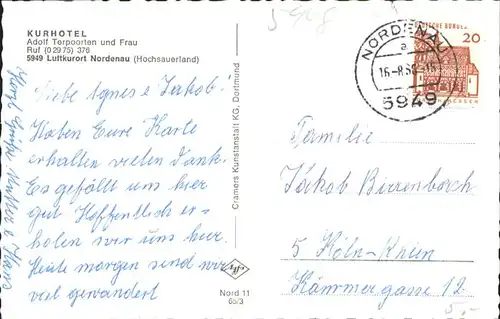 KURHOTEL
Adolf Terpoorten und Frau
Ruf (0 29 75) 376
5949 Luftkurort Nordenau (Hochsauerland)
Liebe Agnes u Jakob.
Haben Eure Karte
erhalten vielen Dank.
Es gefällt uns hier
gut Hoffentlich er-
holen wir uns hier.
Heute morgen sind wir
viel gewandert
Herzl. Grüße
Hans
Cramers Kunstanstalt KG, Dortmund
Nord 11
65/3
NORDENAU
a
16.-8.68.-15
5949
DEUTSCHE BUNDESPOST
20
LORSCH
Familie
Jakob Birrenbach
5 Köln-Rhein
Kämmergasse 12.
5,-